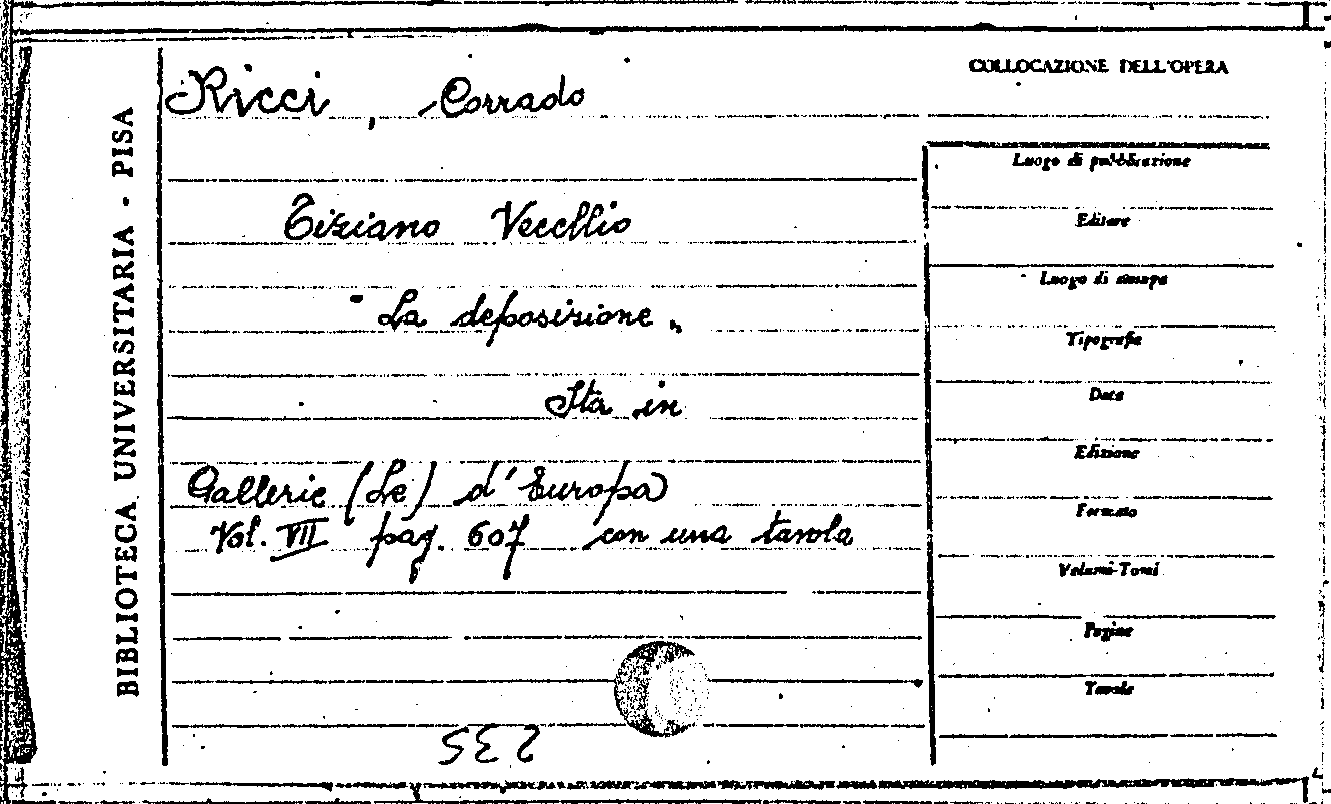 BIBLIOTECA UNIVERSITARIA - PISA
COLLOCAZIONE DELL'OPERA
Ricci, Corrado
Tiziano Vecellio
"La deposizione„
Sta in
Gallerie (Le) d'Europa
Vol. VII pag. 607 con una tavola
235
Luogo di pubblicazione
Editore
Luogo di stampa
Tipografia
Data
Edizione
Formato
Volumi-Tomi
Pagine
Tavole